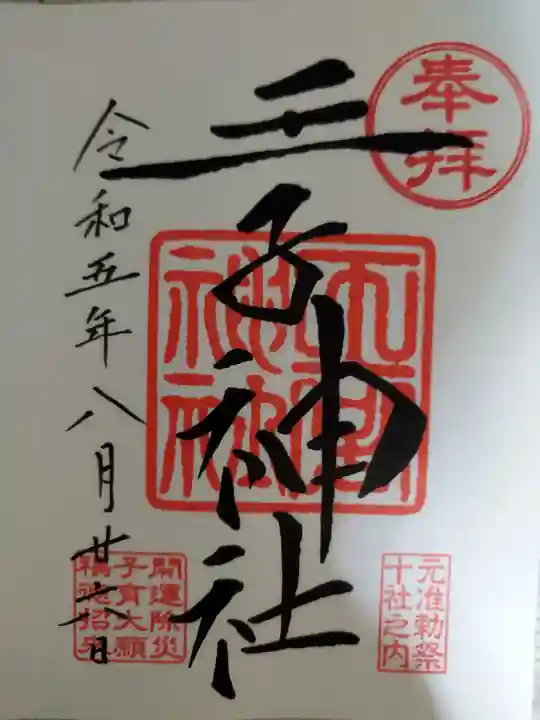 奉拝
元准勅祭
十社之内
王子神社
令和五年八月廿六日
開運除災
子育大願
福徳招来